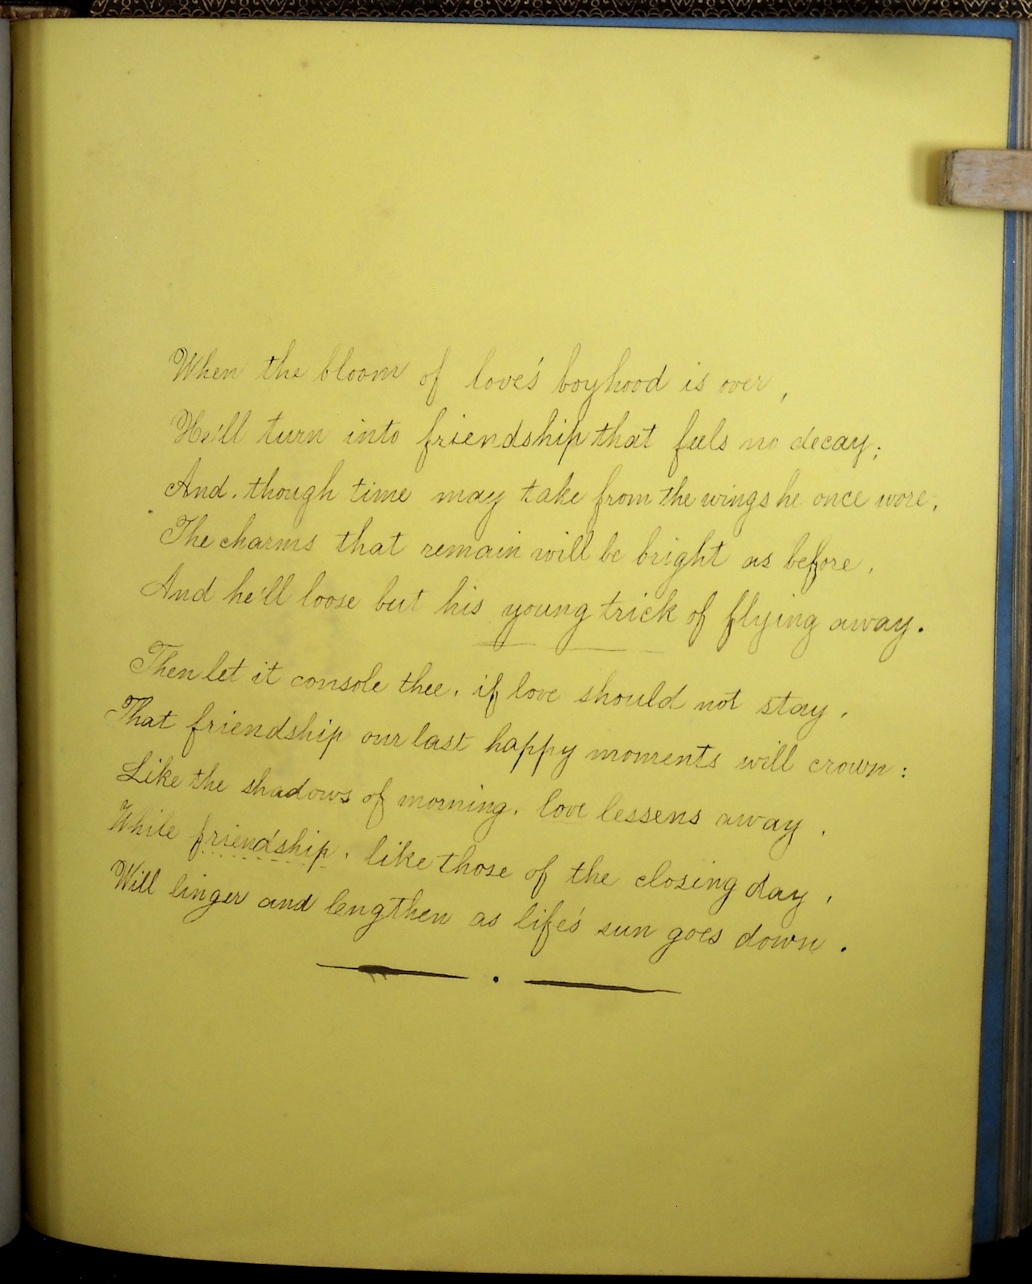 When the bloom of love's boyhood is over,
He'll turn into friendship that feels no decay;
And, though time may take from the wings he once wore,
The charms that remain will be bright as before,
And he'll loose but his young trick of flying away.
Then let it console thee, if love should not stay,
That friendship our last happy moments will crown:
Like the shadows of morning, love lessens away,
While friendship, like those of the closing day,
Will linger and lengthen as life's sun goes down.